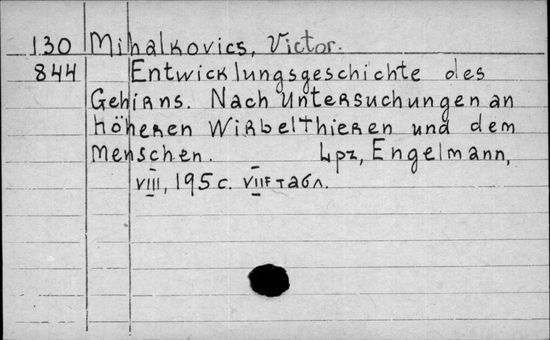 130 Mihalkovics, Victor.
844 Entwicklungsgeschichte des
Gehirns. Nach Untersuchungen an
höheren Wirbelthieren und dem
Menschen. Lpz, Engelmann,
VIII, 195 с. VII табл.